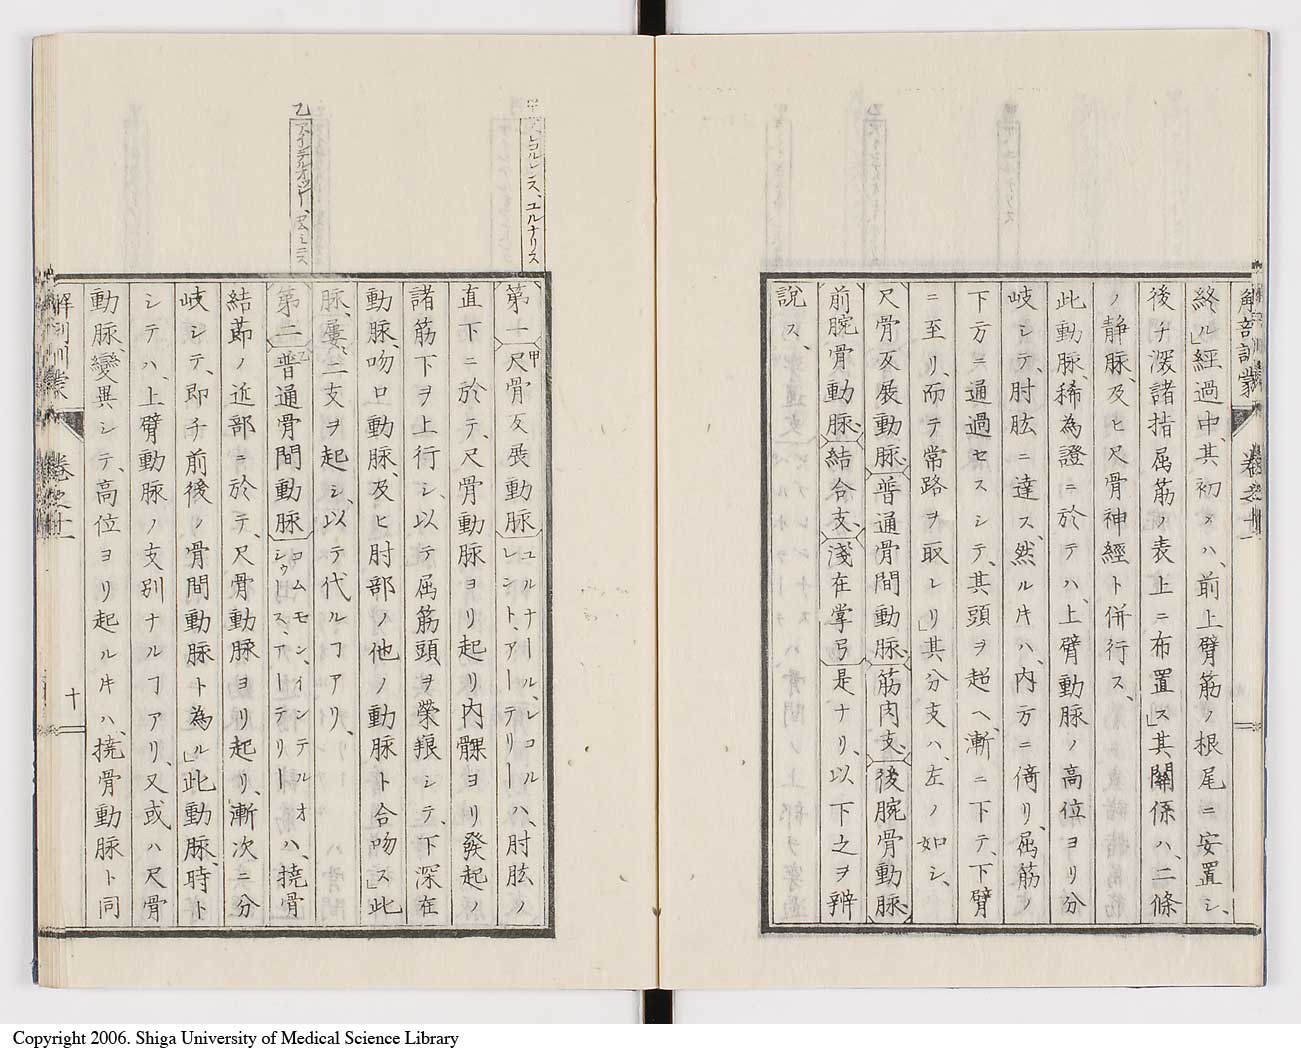 解剖訓蒙 卷之十一
終ル」經過中、其初メハ、前上臂筋ノ根尾ニ安置シ、
後チ深諸指屈筋ノ表上ニ布置ス」其關係ハ、二條
ノ静脈、及ヒ尺骨神經ト併行ス、
此動脈稀為證ニ於テハ、上臂動脈ノ高位ヨリ分
岐シテ、肘胘ニ達ス、然ル片ハ、内方ニ倚リ、屈筋ノ
下方ニ通過セスシテ、其頭ヲ超ヘ、漸ニ下テ、下臂
ニ至リ、而テ常路ヲ取レリ」其分支ハ、左ノ如シ、
尺骨反展動脈、普通骨間動脈、筋肉支、後腕骨動脈
前腕骨動脈、結合支、淺在掌弓是ナリ、以下之ヲ辨
説ス、
甲 レコルレンス、ユルナリス
第一 甲 尺骨反展動脈 ユルナール、レコルレント、アーテリー ハ、肘胘ノ
直下ニ於テ、尺骨動脈ヨリ起リ内髁ヨリ發起ノ
諸筋下ヲ上行シ、以テ屈筋頭ヲ榮痕シテ、下深在
動脈、吻口動脈、及ヒ肘部ノ他ノ動脈ト合吻ス」此
脈、屢二支ヲ起シ、以テ代ルヿアリ、
乙 インテルオッセー、コムミニス
第二 乙 普通骨間動脈 コムモン、インテルオシウース、アーテリー ハ、撓骨
結莭ノ近部ニ於テ、尺骨動脈ヨリ起リ、漸次ニ分
岐シテ、即チ前後ノ骨間動脈ト為ル」此動脈、時ト
シテハ、上臂動脈ノ支別ナルヿアリ、又或ハ尺骨
動脈、變異シテ、高位ヨリ起ル片ハ、撓骨動脈ト同
解剖訓蒙 卷之十一 十